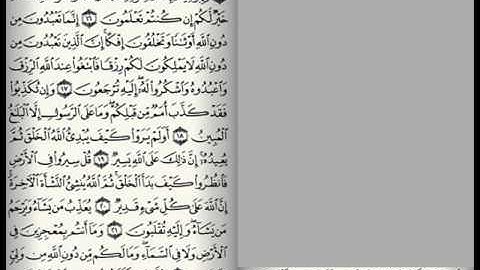 خَيْرٌ لَّكُمْ إِن كُنتُمْ تَعْلَمُونَ ١٦ إِنَّمَا تَعْبُدُونَ مِن
دُونِ ٱللَّهِ أَوْثَٰنًا وَتَخْلُقُونَ إِفْكًا إِنَّ ٱلَّذِينَ تَعْبُدُونَ مِن
دُونِ ٱللَّهِ لَا يَمْلِكُونَ لَكُمْ رِزْقًا فَٱبْتَغُوا۟ عِندَ ٱللَّهِ ٱلرِّزْقَ
وَٱعْبُدُوهُ وَٱشْكُرُوا۟ لَهُۥٓ إِلَيْهِ تُرْجَعُونَ ١٧ وَإِن تُكَذِّبُوا۟
فَقَدْ كَذَّبَ أُمَمٌ مِّن قَبْلِكُمْ وَمَا عَلَى ٱلرَّسُولِ إِلَّا ٱلْبَلَٰغُ
ٱلْمُبِينُ ١٨ أَوَلَمْ يَرَوْا۟ كَيْفَ يُبْدِئُ ٱللَّهُ ٱلْخَلْقَ ثُمَّ
يُعِيدُهُۥٓ إِنَّ ذَٰلِكَ عَلَى ٱللَّهِ يَسِيرٌ ١٩ قُلْ سِيرُوا۟ فِى ٱلْأَرْضِ
فَٱنظُرُوا۟ كَيْفَ بَدَأَ ٱلْخَلْقَ ثُمَّ ٱللَّهُ يُنشِئُ ٱلنَّشْأَةَ ٱلْءَاخِرَةَ
إِنَّ ٱللَّهَ عَلَىٰ كُلِّ شَىْءٍ قَدِيرٌ ٢٠ يُعَذِّبُ مَن يَشَآءُ وَيَرْحَمُ
مَن يَشَآءُ وَإِلَيْهِ تُقْلَبُونَ ٢١ وَمَآ أَنتُم بِمُعْجِزِينَ فِى
ٱلْأَرْضِ وَلَا فِى ٱلسَّمَآءِ وَمَا لَكُم مِّن دُونِ ٱللَّهِ مِن وَلِىٍّ